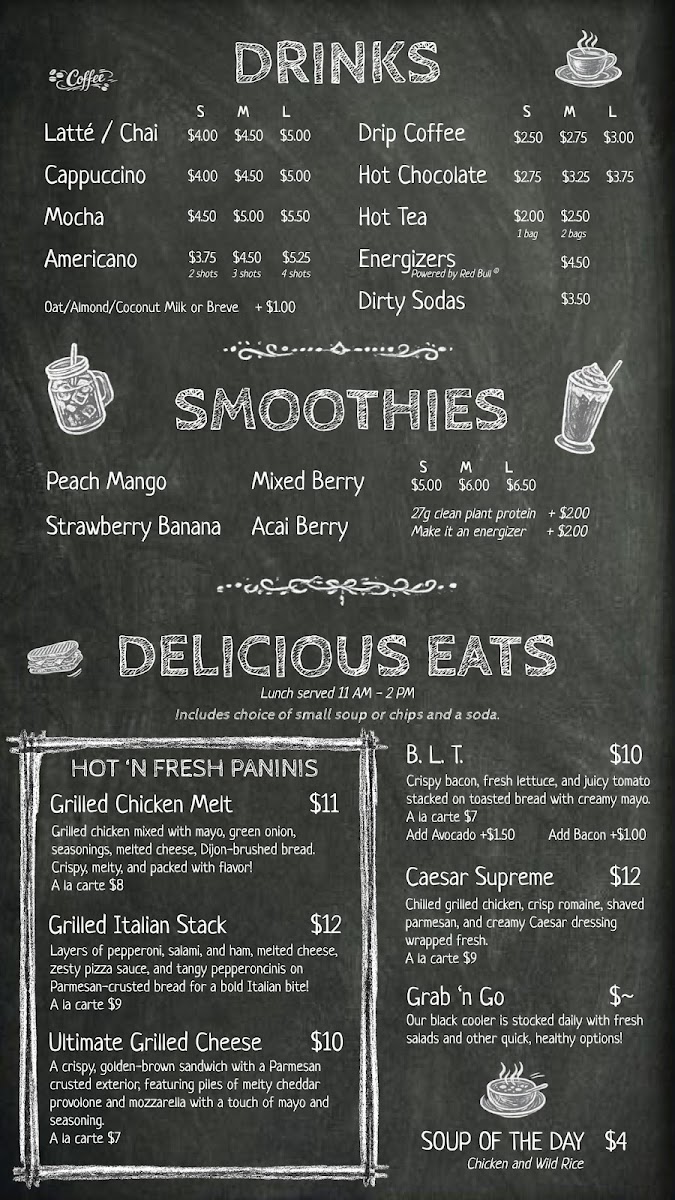 Coffee
DRINKS
S M L
Latté / Chai $4.00 $4.50 $5.00
Cappuccino $4.00 $4.50 $5.00
Mocha $4.50 $5.00 $5.50
Americano $3.75 $4.50 $5.25
2 shots 3 shots 4 shots
Oat/Almond/Coconut Milk or Breve + $1.00
S M L
Drip Coffee $2.50 $2.75 $3.00
Hot Chocolate $2.75 $3.25 $3.75
Hot Tea $2.00 $2.50
1 bag 2 bags
Energizers $4.50
Powered by Red Bull ®
Dirty Sodas $3.50
SMOOTHIES
Peach Mango Mixed Berry
Strawberry Banana Acai Berry
S M L
$5.00 $6.00 $6.50
27g clean plant protein + $2.00
Make it an energizer + $2.00
DELICIOUS EATS
Lunch served 11 AM - 2 PM
Includes choice of small soup or chips and a soda.
HOT ‘N FRESH PANINIS
Grilled Chicken Melt $11
Grilled chicken mixed with mayo, green onion,
seasonings, melted cheese, Dijon-brushed bread.
Crispy, melty, and packed with flavor!
A la carte $8
Grilled Italian Stack $12
Layers of pepperoni, salami, and ham, melted cheese,
zesty pizza sauce, and tangy pepperoncinis on
Parmesan-crusted bread for a bold Italian bite!
A la carte $9
Ultimate Grilled Cheese $10
A crispy, golden-brown sandwich with a Parmesan
crusted exterior, featuring piles of melty cheddar
provolone and mozzarella with a touch of mayo and
seasoning.
A la carte $7
B. L. T. $10
Crispy bacon, fresh lettuce, and juicy tomato
stacked on toasted bread with creamy mayo.
A la carte $7
Add Avocado +$1.50 Add Bacon +$1.00
Caesar Supreme $12
Chilled grilled chicken, crisp romaine, shaved
parmesan, and creamy Caesar dressing
wrapped fresh.
A la carte $9
Grab ‘n Go $~
Our black cooler is stocked daily with fresh
salads and other quick, healthy options!
SOUP OF THE DAY $4
Chicken and Wild Rice